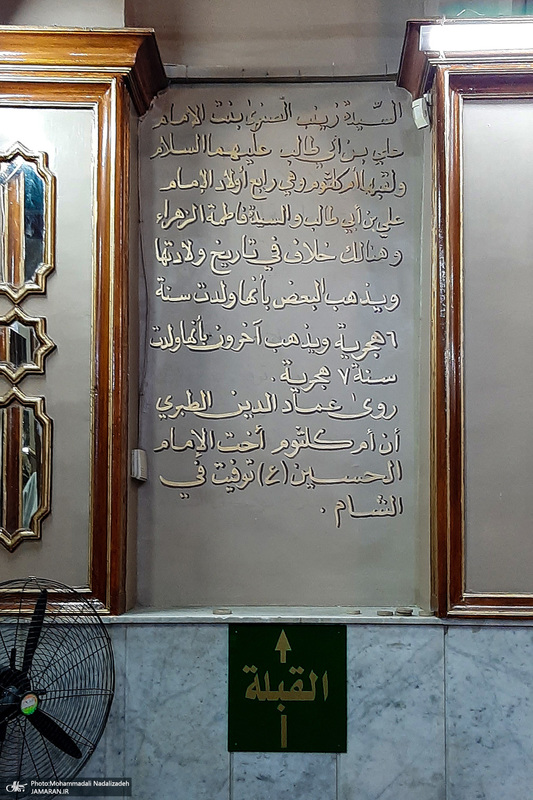 السيدة زينب الصغرى بنت الإمام
علي بن أبي طالب عليهما السلام
ولقبها أم كلثوم وهي رابع أولاد الإمام
علي بن أبي طالب والسيدة فاطمة الزهراء
وهنالك خلاف في تاريخ ولادتها
ويذهب البعض بأنها ولدت سنة
٦ هجرية ويذهب آخرون بأنها ولدت
سنة ٧ هجرية .
روى عماد الدين الطبري
أن أم كلثوم أخت الإمام
الحسين (ع) توفيت في
الشام .
القبلة
Photo:Mohammadali Nadalizadeh
JAMARAN.IR